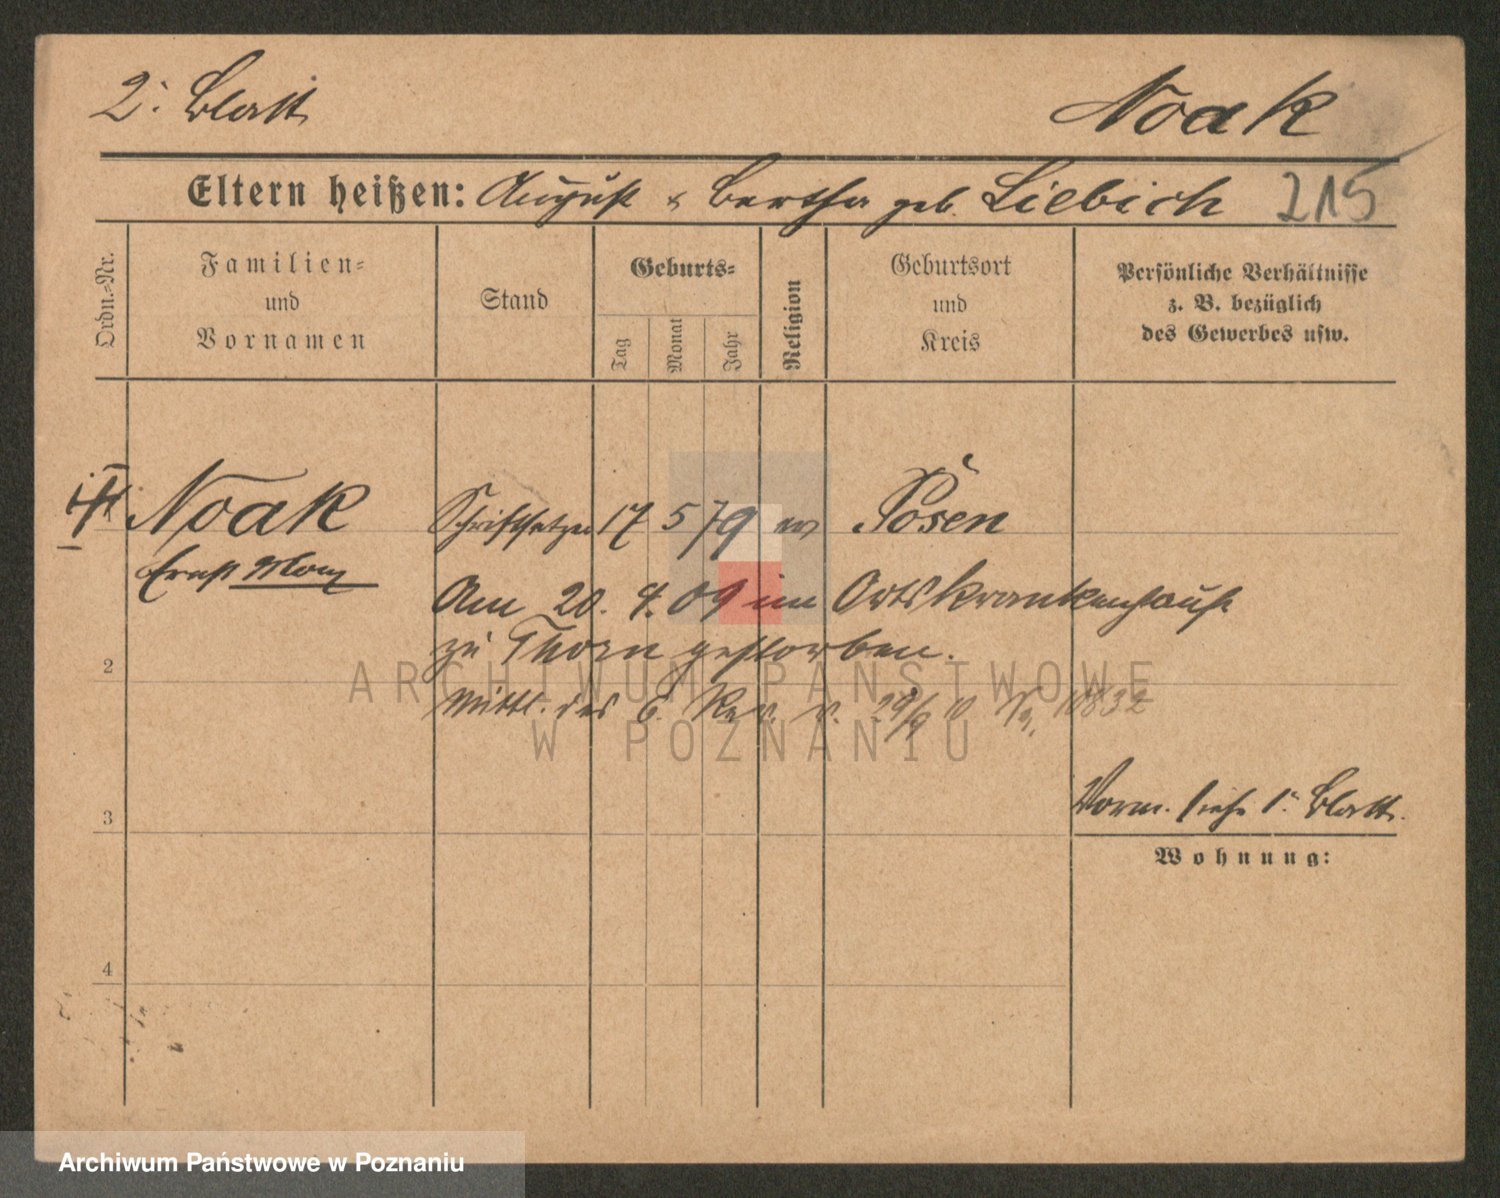 2. Blatt
Noak
Eltern heißen: August & Bertha geb. Liebich 215
Ordn.-Nr.
Familien-
und
Vornamen
Stand
Geburts-
Tag
Monat
Jahr
Religion
Geburtsort
und
Kreis
Persönliche Verhältnisse
z. B. bezüglich
des Gewerbes usw.
Noak Schriftsetzer 17 5 79 ev Posen
Ernst Max
Am 20. 4. 09 im Ortskrankenhause
zu Thorn gestorben.
2
Mittl. des 6. Rev. v.
ARCHIWUM PAŃSTWOWE
W POZNANIU
Vorm. siehe 1. Blatt.
3
Wohnung:
4
Archiwum Państwowe w Poznaniu